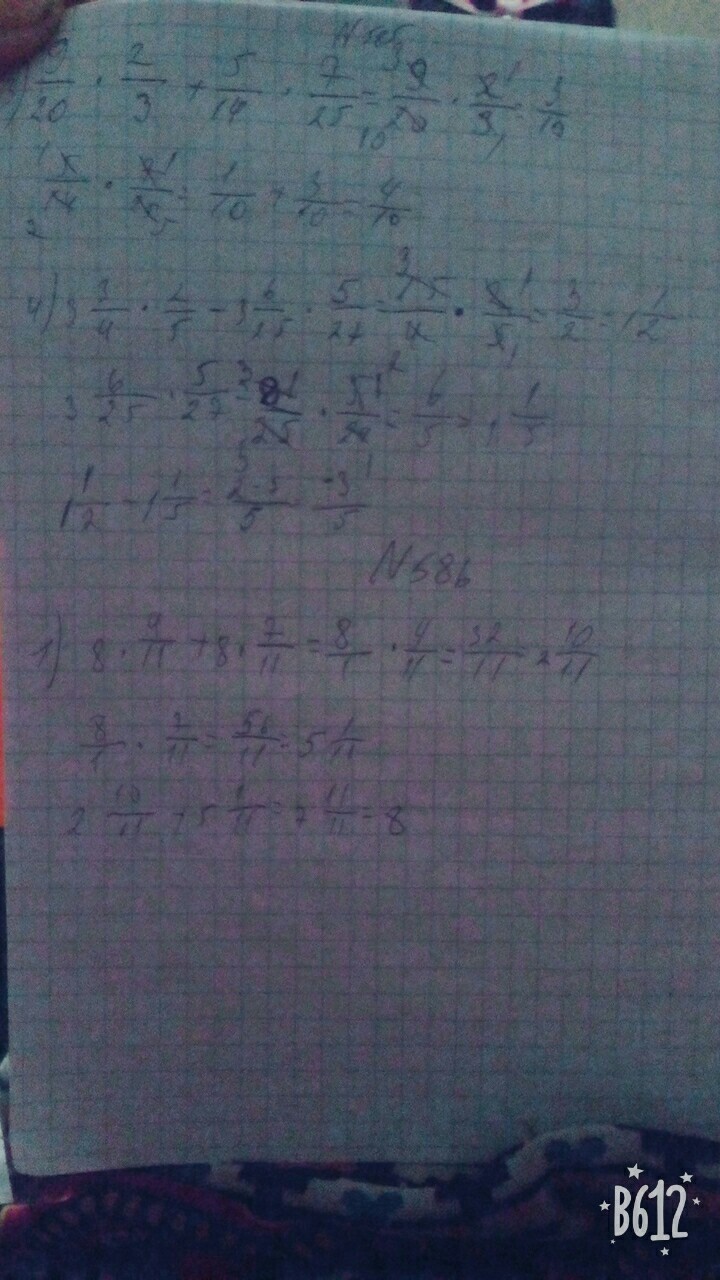 N 585
9/20 · 2/3 + 5/14 · 7/25 = 9/20 · 2/3 = 3/10
5/14 · 7/25 = 1/10 + 3/10 = 4/10
4) 3 3/4 · 2/5 - 3 6/25 · 5/27 = 15/4 · 2/5 = 3/2 = 1 1/2
3 6/25 · 5/27 = 81/25 · 5/27 = 6/5 = 1 1/5
1 1/2 - 1 1/5 =
N 586
1) 8 · 4/11 + 8 · 7/11 = 8/1 · 4/11 = 32/11 = 2 10/11
8/1 · 7/11 = 56/11 = 5 1/11
2 10/11 + 5 1/11 = 7 11/11 = 8
B612